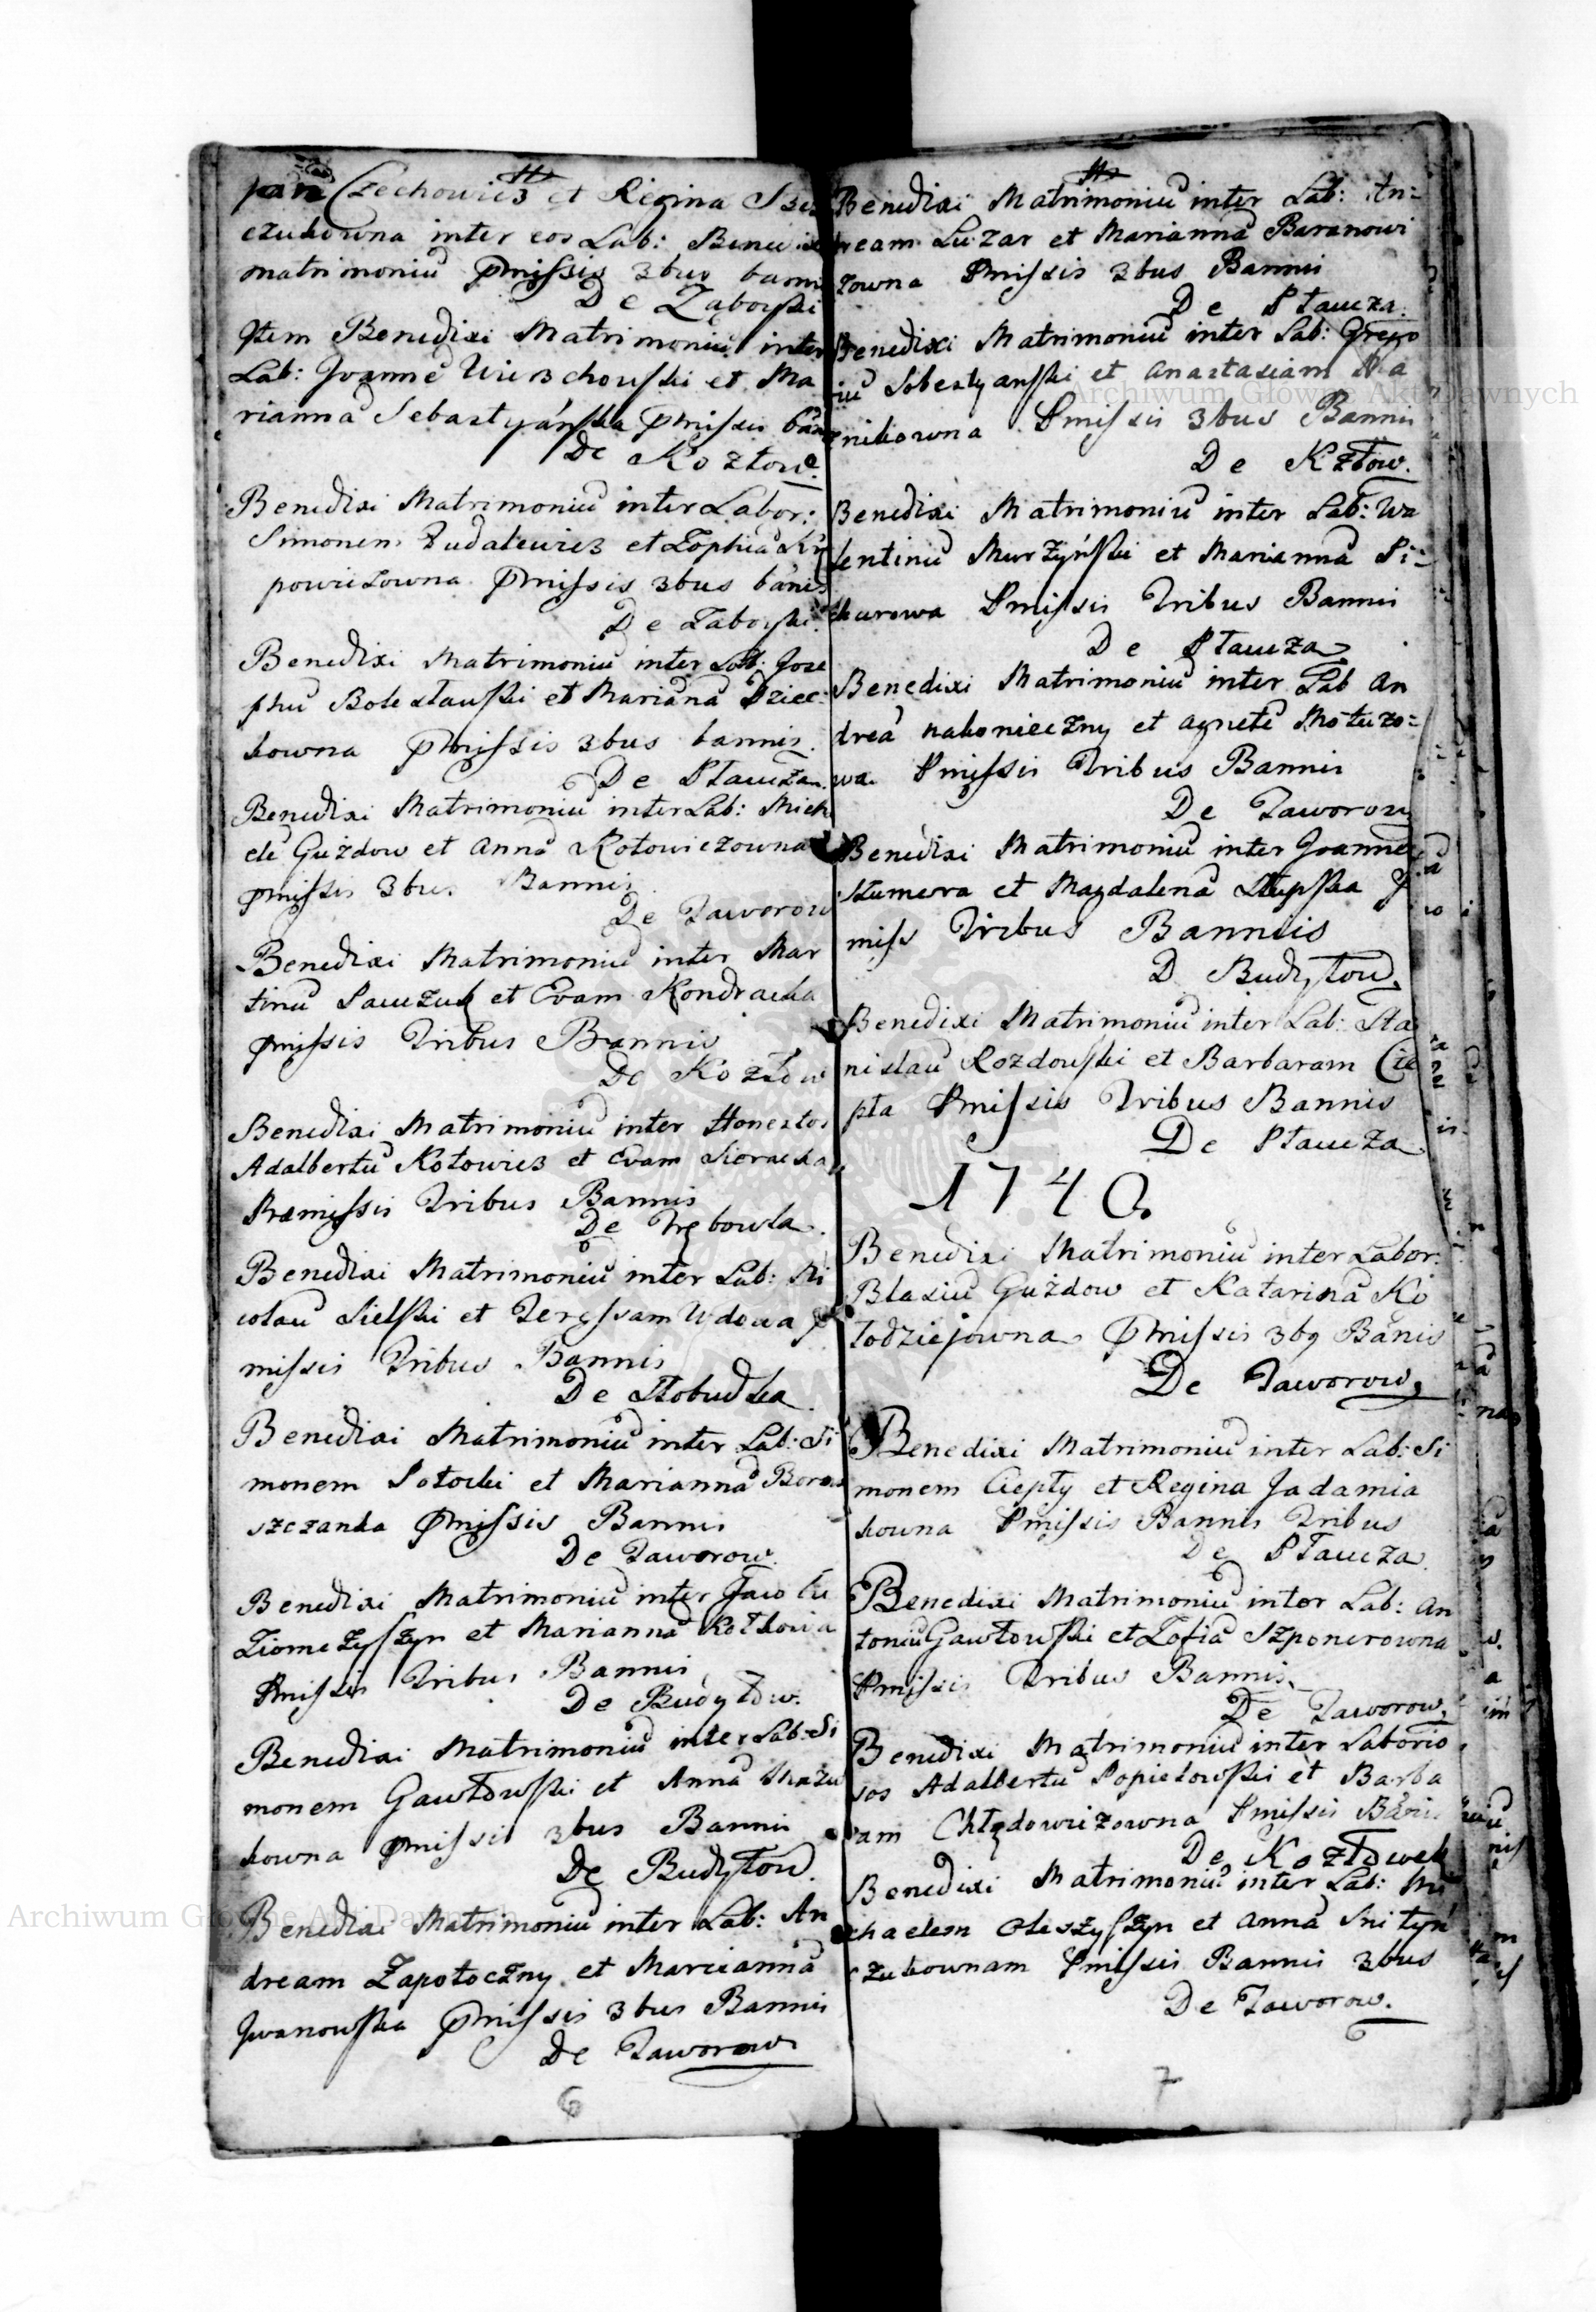 pan Czechowicz et Regina
czukowna inter eos Lab: Benedixi
matrimoniũ pmissis 3bus banni
De Zaboyki
Item Benedixi Matrimoniũ inter
Lab: Joannẽ Wierzchowski et Ma
riannã Sebastyańska pmissis bãn
De Kozłow.
Benedixi Matrimoniũ inter Labor:
Simonem Dudalewicz et Zophiã
powiczowna pmissis 3bus bãnis
De Zaboyki.
Benedixi Matrimoniũ inter Lab: Jose
phũ Bolestawski et Mariãnã Dziec:
kowna pmissis 3bus bannis.
De Płaucza.
Benedixi Matrimoniũ inter Lab: Mich
ele Gużdow et Annã Kotowiczowna
pmissis 3bus Bannis
De Jaworow
Benedixi Matrimoniũ inter Mar
tinũ Sawczuk et Evam Kondracka
pmissis Tribus Bannis
De Kozłow
Benedixi Matrimoniũ inter Honestos
Adalbertũ Kotowicz et Evam Sieracka
Præmissis Tribus Bannis
De Trębowla.
Benedixi Matrimoniũ inter Lab: Ni
colaũ Sielski et Teressam Wdowa p
missis Tribus Bannis
De Słobudka.
Benedixi Matrimoniũ inter Lab: Si
monem Potocki et Mariannã Boro
szczanka pmissis Bannis
De Jaworow.
Benedixi Matrimoniũ inter Jaco bũ
et Mariannã
Pmissis Tribus Bannis
De Budyłow.
Benedixi Matrimoniũ inter Lab: Si
monem Gawłowski et Annã Mazu
kowna pmissis 3bus Bannis
De Budyłow.
Benedixi Matrimoniũ inter Lab: An
dream Zapotoczny et Mariannã
Iwanowska pmissis 3bus Bannis
De Jaworow
6
Benedixi Matrimoniũ inter Lab: An=
dream Luzar et Mariannã Baranowi
zowna Pmissis 3bus Bannis
De Płaucza.
Benedixi Matrimoniũ inter Lab: Grego
riũ Sobestyanski et Anastasiam
znikowna Pmissis 3bus Bannis
De Kzłow.
Benedixi Matrimoniũ inter Lab: Wa
lentinũ Murzyński et Mariannã Pi=
karowa Pmissis Tribus Bannis
De Płaucza
Benedixi Matrimoniũ inter Lab An
dreã nakonieczny et Agnetẽ Motuzo=
wa Pmissis Tribus Bannis
De Jaworow
Benedixi Matrimoniũ inter Joannẽ
et Magdalenã Słupska P
miss Tribus Bannis
D Budyłow.
Benedixi Matrimoniũ inter Lab: Sta
nislaũ Rozdowski et Barbaram Cie
pła Pmissis Tribus Bannis
De Płaucza
1740.
Benedixi Matrimoniũ inter Labor:
Blasiũ Gużdow et Katarinã Ko
łodziejowna pmissis 3bq Bãnis
De Jaworow.
Benedixi Matrimoniũ inter Lab: Si
monem Ciepły et Regina Jadamia
kowna Pmissis Bannis Tribus
De Płaucza.
Benedixi Matrimoniũ inter Lab: An
toniũ Gawłowski et Zofiã Szponerowna
Pmissis Tribus Bannis.
De Jaworow.
Benedixi Matrimoniũ inter Laborio
sos Adalbertũ Popielowski et Barba
ram Chłędowiczowna Pmissis Bãnis
De Kozłowek
Benedixi Matrimoniũ inter Lab: Mi
chaelem Oleszyszyn et Annã Sni tyń
czukownam Pmissis Bannis 3bus
De Jaworow.
7
Archiwum Główne Akt Dawnych
Archiwum Główne Akt Dawnych